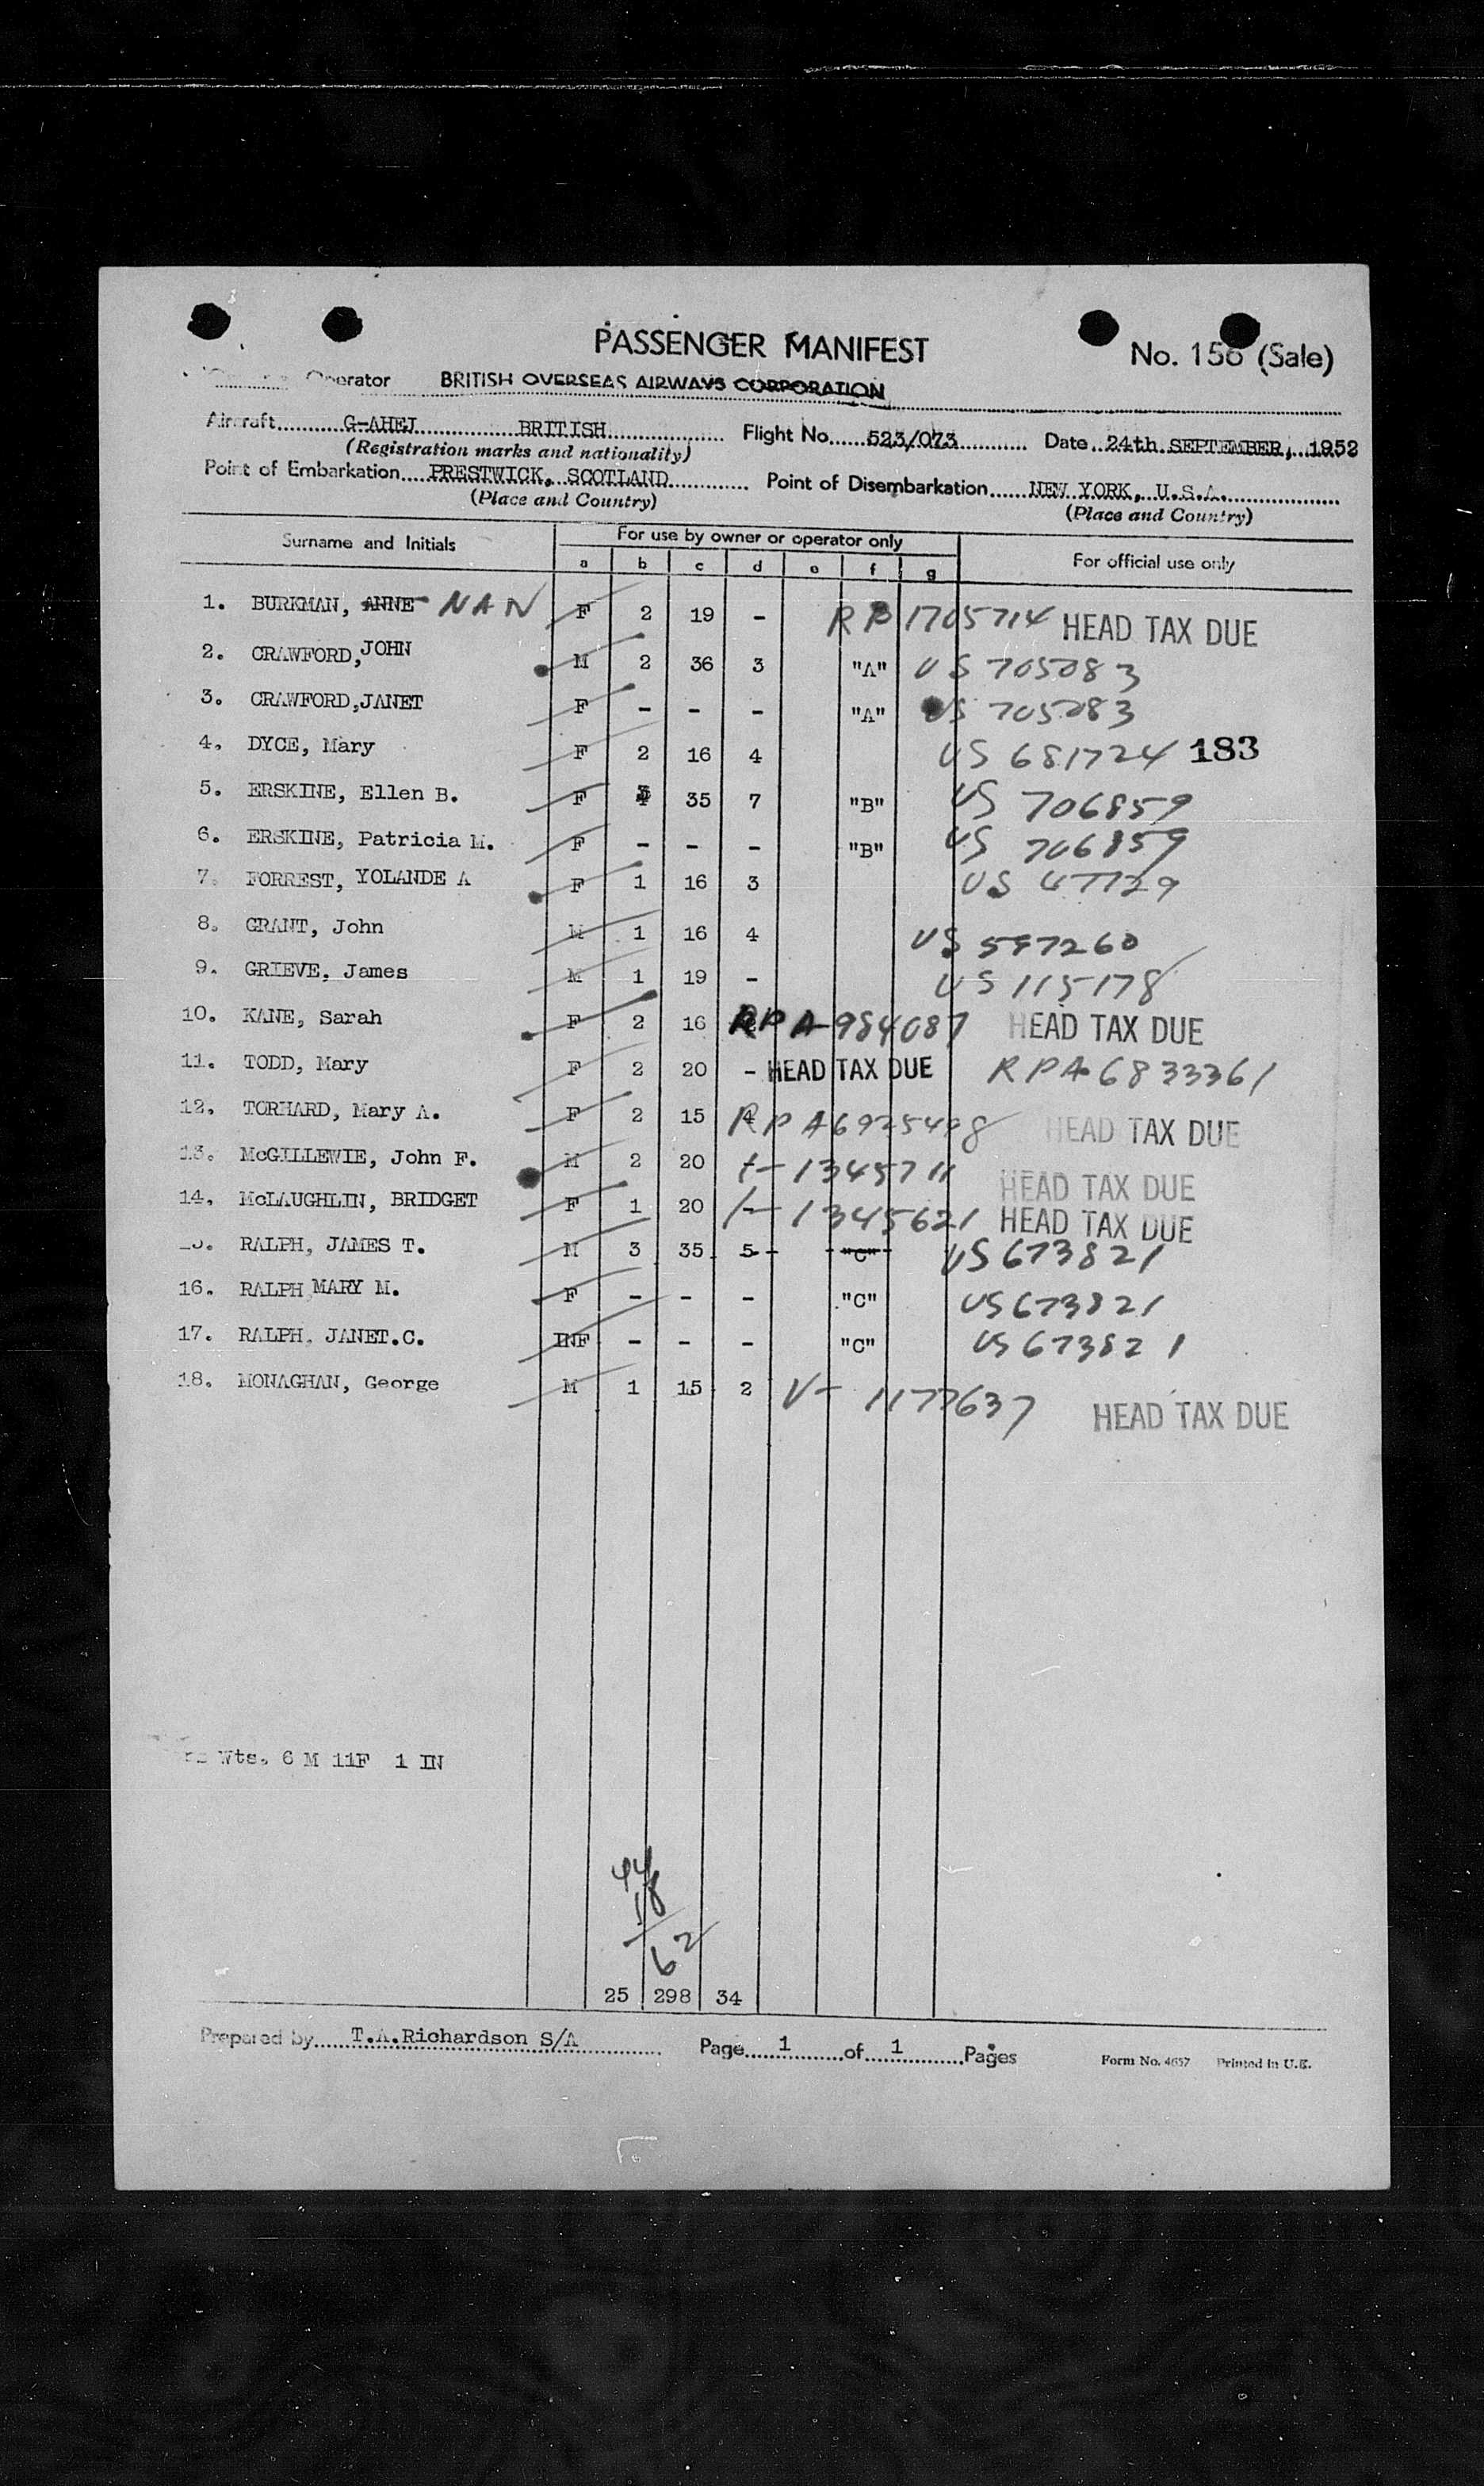 PASSENGER MANIFEST
No. 156 (Sale)
Operator BRITISH OVERSEAS AIRWAYS CORPORATION
Aircraft G-AHEJ BRITISH Flight No. 523/073 Date 24th SEPTEMBER, 1952
(Registration marks and nationality)
Point of Embarkation PRESTWICK, SCOTLAND Point of Disembarkation NEW YORK, U.S.A.
(Place and Country) (Place and Country)
Surname and Initials For use by owner or operator only For official use only
a b c d e f g
1. BURKMAN, ANNE NAN F 2 19 - 1705714 HEAD TAX DUE
2. CRAWFORD, JOHN M 2 36 3 "A" US 705083
3. CRAWFORD, JANET F - - - "A" US 705083
4. DYCE, Mary F 2 16 4 US 681724 183
5. ERSKINE, Ellen B. F 35 7 "B" US 706859
6. ERSKINE, Patricia M. F - - - "B" US 706859
7. FORREST, YOLANDE A F 1 16 3 US 47729
8. GRANT, John M 1 16 4 US 597260
9. GRIEVE, James M 1 19 - US 115178
10. KANE, Sarah F 2 16 RPA-984087 HEAD TAX DUE
11. TODD, Mary F 2 20 - HEAD TAX DUE RPA 6833361
12. TORHARD, Mary A. F 2 15 4 RPA6925498 HEAD TAX DUE
13. McGILLEWIE, John F. M 2 20 - 1345711 HEAD TAX DUE
14. McLAUGHLIN, BRIDGET F 1 20 - 1345621 HEAD TAX DUE
RALPH, JAMES T. M 3 35 5 "C" US 673821
16. RALPH MARY M. F - - - "C" US 673821
17. RALPH, JANET.C. INF - - - "C" US 673821
18. MONAGHAN, George M 1 15 2 V- 1177637 HEAD TAX DUE
Wts. 6 M 11F 1 IN
44
18
62
25 298 34
Prepared by T.A.Richardson S/A Page 1 of 1 Pages Form No. 4657 Printed in U.K.